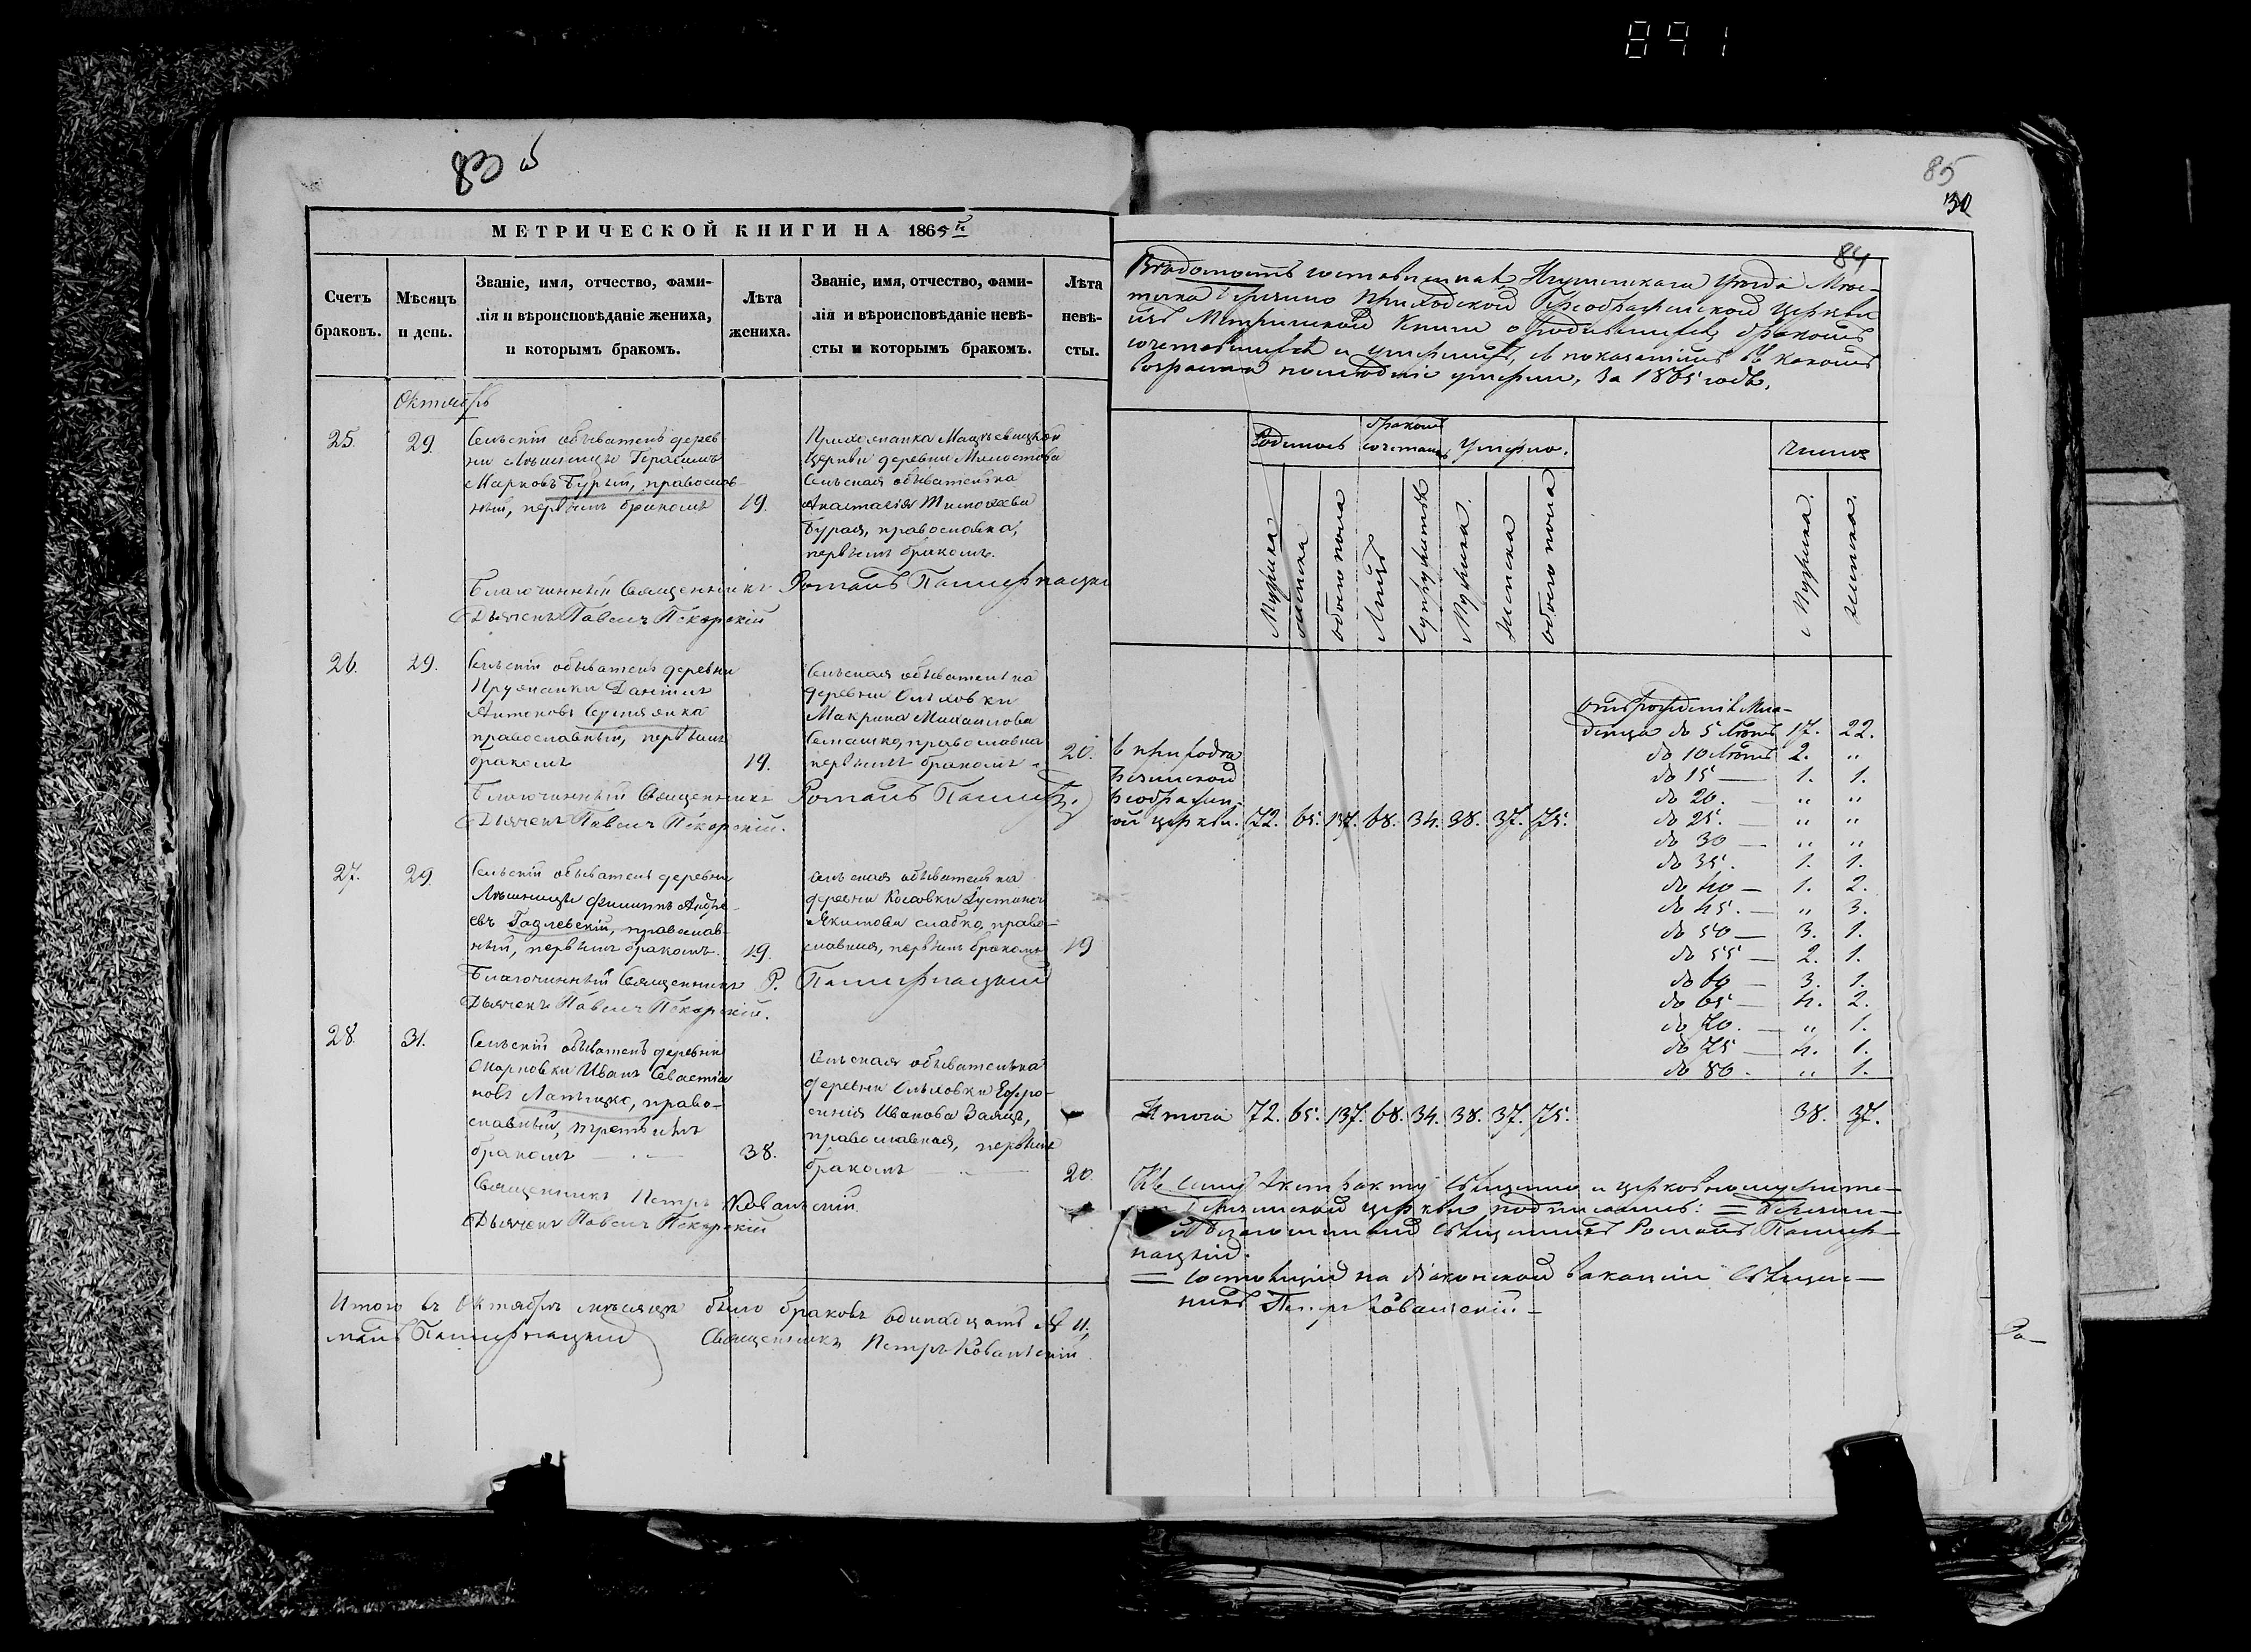 891
83 об
МЕТРИЧЕСКОЙ КНИГИ НА 1865й
Счетъ браковъ.
Мѣсяцъ и день.
Званіе, имя, отчество, фами-
лія и вѣроисповѣданіе жениха,
и которымъ бракомъ.
Лѣта жениха.
Званіе, имя, отчество, фами-
лія и вѣроисповѣданіе невѣ-
сты и которымъ бракомъ.
Лѣта невѣ-
сты.
Октябрь
25. 29.
Сельскій обыватель дерев-
ни Лѣшницы Герасимъ
Марковъ Бурый, православ-
ный, первымъ бракомъ 19.
Прихожанка
Церкви деревни Милостова
Сельская обывателька
Анастасія Тимофеева
Бурая, православна,
первымъ бракомъ.
Благочинный Священникъ Романъ Пастернацкій
Дьячекъ Павелъ Пекарскій
26. 29.
Сельскій обыватель деревни
Даніилъ
Антоновъ
православный, первымъ
бракомъ 19.
Сельская обывателька
деревни Ольховки
Макрина Михаилова
Семашко, православна
первымъ бракомъ 20.
Благочинный Священникъ Романъ
Дьячекъ Павелъ Пекарскій.
27. 29.
Сельскій обыватель деревни
Лѣшницы Филиппъ Андре-
евъ Гадлевскій, православ-
ный, первымъ бракомъ. 19.
Сельская обывателька
деревни Косовки Густина
Якимова Слабко, право-
славная, первымъ бракомъ 19
Благочинный Священникъ Р. Пастернацкій
Дьячекъ Павелъ Пекарскій.
28. 31.
Сельскій обыватель деревни
Иванъ Севастіа
новъ Латышко, право-
славный, третьимъ
бракомъ 38.
Сельская обывателька
деревни Ольховки Ефро-
синія Иванова Заяцъ,
православная, первымъ
бракомъ 20.
Священникъ Петръ Ковальскій
Дьячекъ Павелъ Пекарскій
Итого въ Октябрѣ мѣсяцѣ было браковъ одинадцать № 11.
манъ Пастернацкій Священникъ Петръ Ковальскій
85
30
84
Вѣдомость составленная Игуменскаго уѣзда Мѣс-
течка Березино Приходской Преображенской Церкви
изъ Метрической Книги о родившихся, бракомъ
сочетавшихся и умершихъ, съ показаніемъ въ какомъ
возрастѣ послѣдніе умерли, за 1865 годъ.
Родилось
бракомъ сочеталось
Умерло.
Число
Мужска
женска
обоего пола
Лицъ
Супружествъ
Мужска.
женска
обоего пола
Мужска.
женска.
Въ приходѣ
Березинской
Преображен-
ой церкви. 72. 65. 137. 68. 34. 38. 37. 75.
отъ рожденія Мла-
денца до 5 лѣтъ 17. 22.
до 10 лѣтъ 2. "
до 15 — 1. 1.
до 20. — " "
до 25. — " "
до 30 — " "
до 35. 1. 1.
до 40 — 1. 2.
до 45. — " 3.
до 50 — 3. 1.
до 55 — 2. 1.
до 60 — 3. 1.
до 65 — 4. 2.
до 70. — " 1.
до 75 — 4. 1.
до 80. " 1.
Итога 72. 65. 137. 68. 34. 38. 37. 75. 38. 37.
Къ Сему Экстракту Священно и церковнослужите-
Березинской церкви подписались: =
Благочинный Священникъ Романъ Пастер-
нацкій.
= Состоящій на Діаконской Вакансіи Священ-
никъ Петръ Ковальскій —
Ро-